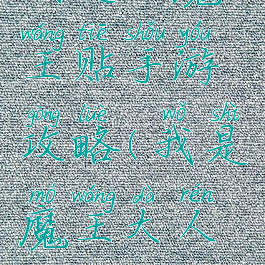 wáng tiē shǒu yóu
王贴手游
gōng lüè wǒ shì
攻略(我是
mó wáng dà rén
魔王大人